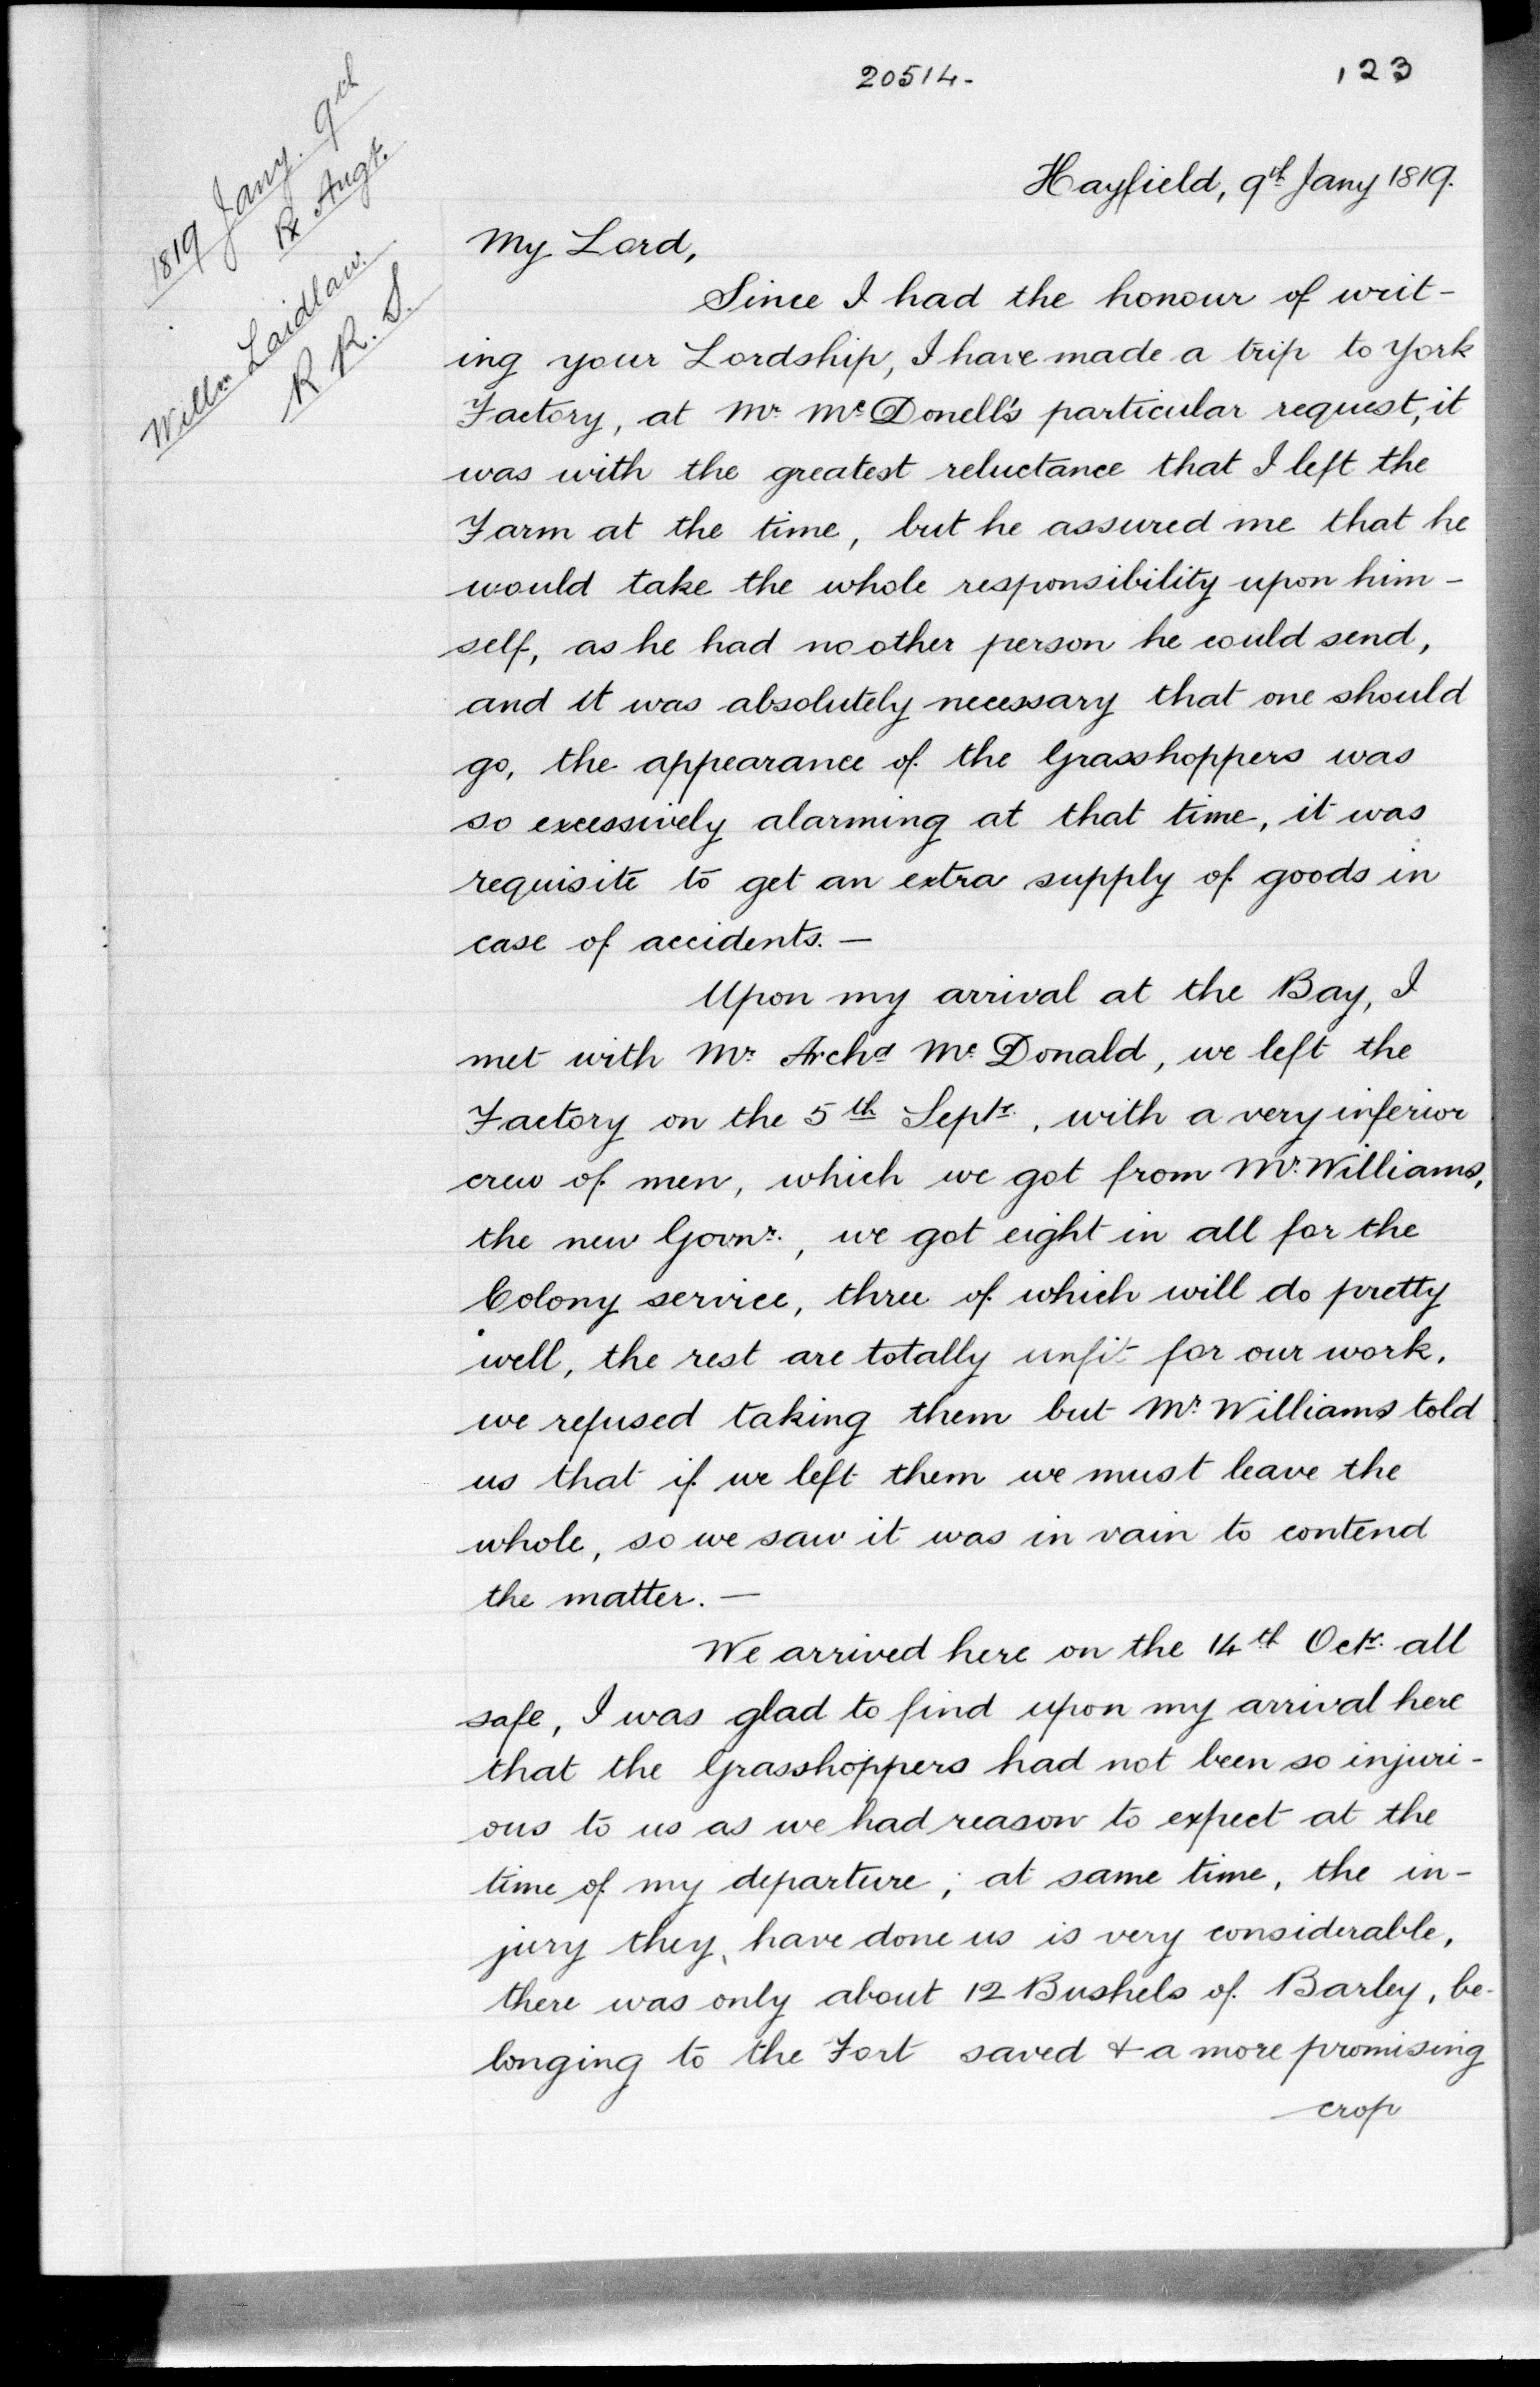 20514-
123
1819 Jany. 9th
Rx Augt.
Willm Laidlaw.
R R. S.
Hayfield, 9th Jany 1819.
My Lord,
Since I had the honour of writ-
ing your Lordship, I have made a trip to York
Factory, at Mr. McDonell's particular request, it
was with the greatest reluctance that I left the
Farm at the time, but he assured me that he
would take the whole responsibility upon him-
self, as he had no other person he could send,
and it was absolutely necessary that one should
go, the appearance of the Grasshoppers was
so excessively alarming at that time, it was
requisite to get an extra supply of goods in
case of accidents. —
Upon my arrival at the Bay, I
met with Mr. Archd McDonald, we left the
Factory on the 5th Septr., with a very inferior
crew of men, which we got from Mr. Williams,
the new Govnr., we got eight in all for the
Colony service, three of which will do pretty
well, the rest are totally unfit for our work.
we refused taking them but Mr. Williams told
us that if we left them we must leave the
whole, so we saw it was in vain to contend
the matter. —
We arrived here on the 14th Octr. all
safe, I was glad to find upon my arrival here
that the Grasshoppers had not been so injuri-
ous to us as we had reason to expect at the
time of my departure; at same time, the in-
jury they have done us is very considerable,
there was only about 12 Bushels of Barley, be-
longing to the Fort saved & a more promising
crop